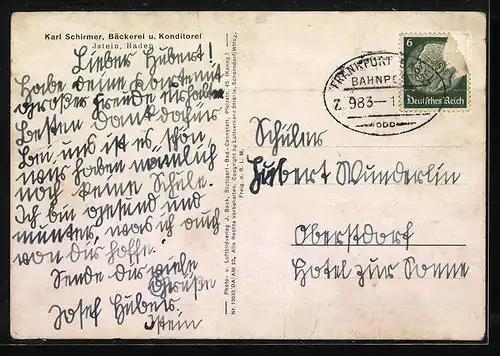 Karl Schirmer, Bäckerei u. Konditorei
Jstein, Baden
Lieber Hubert!
Habe deine Karte mit
großer Freude erhalten
besten Dank dafür
bei uns ist es schön
wir haben nämlich
noch keine Schule.
Ich bin gesund und
munter, was ich auch
von dir hoffe.
Sende dir viele
Grüße
Josef Huber.
Istein
Photo- u. Luftbildverlag J. Beck, Stuttgart-Bad-Cannstatt, Pfalzstr. 45
Alle Rechte vorbehalten. Copyright by
Freig. d. R. L. M.
FRANKFURT
BAHNPOST
Z. 983
6
Deutsches Reich
Schüler
Hubert Wunderlin
Oberstdorf
Hotel zur Sonne